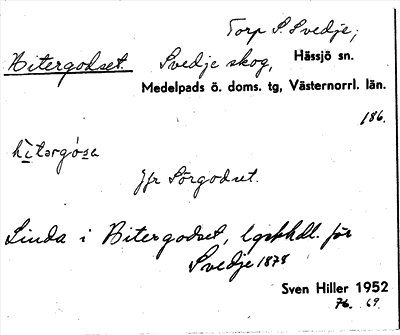 Torp S. Svedje,
Hitergodset. Svedje skog, Hässjö sn.
Medelpads ö. doms. tg, Västernorrl. län.
186.
hìtərgósa
Jfr Sörgodset.
Linda i Bitergodset, lgskhdl. för
Svedje 1878
Sven Hiller 1952
76. 69.